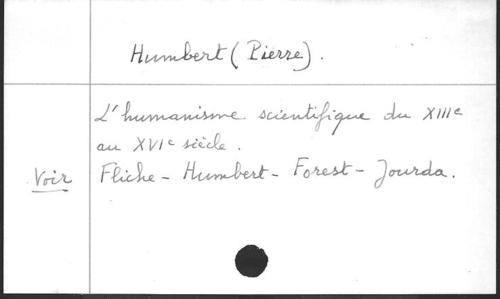 Humbert (Pierre).
L'humanisme scientifique du XIIIe
au XVIe siècle.
Voir Fliche - Humbert - Forest - Jourda.